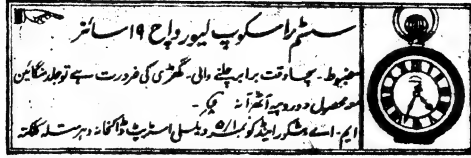 سسٹم راسکوپ لیور واچ ۱۹ سائز
مضبوط۔ سچا وقت برابر چلنے والی۔ گھڑی کی ضرورت ہے تو جلد منگائیں
مع محصول دو روپیہ آٹھ آنہ
ایم۔ اے شکور اینڈ کو نمبر ۵/۱ ویلسلی اسٹریٹ ڈاکخانہ دہرمتلہ کلکتہ